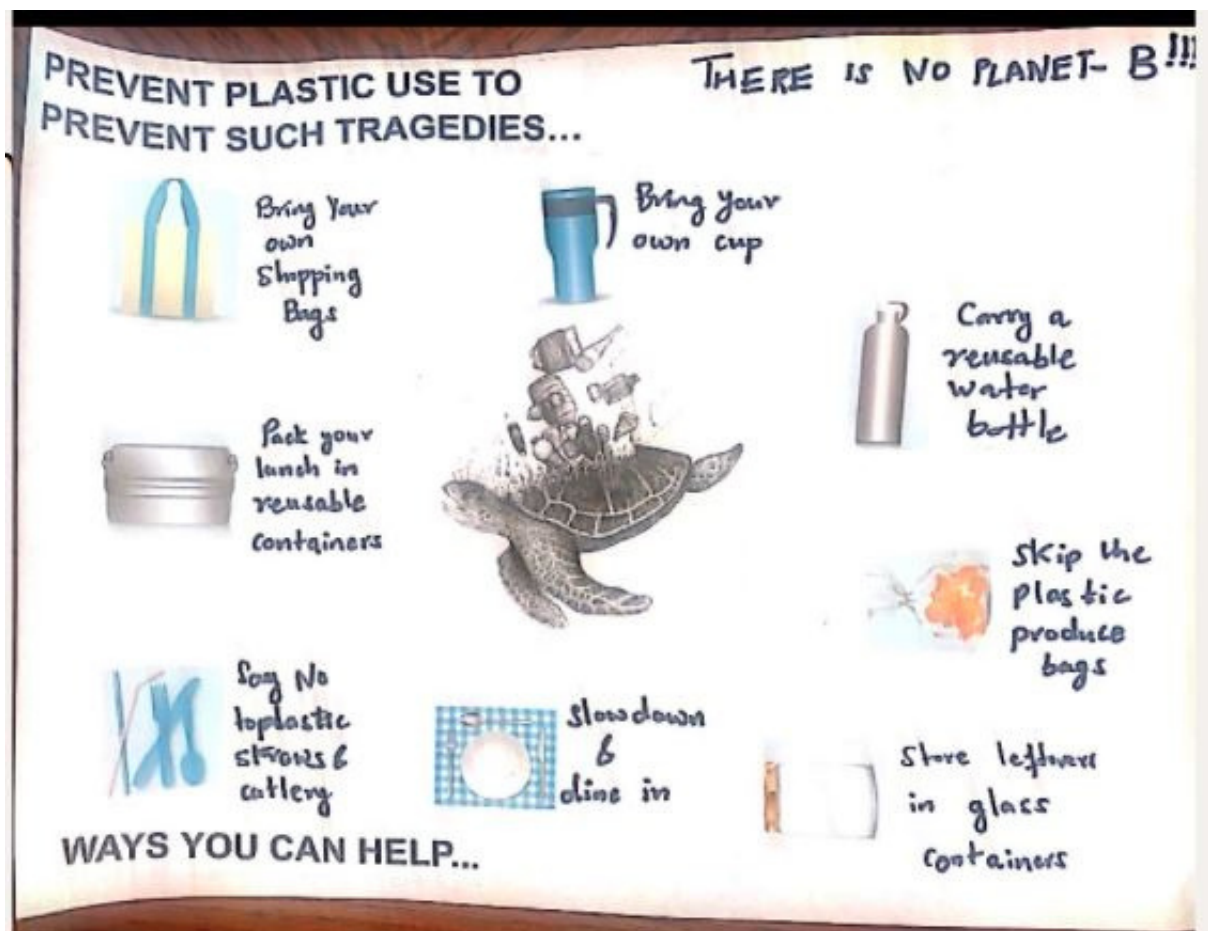 PREVENT PLASTIC USE TO
PREVENT SUCH TRAGEDIES...
THERE IS NO PLANET- B!!!
Bring Your
own
Shopping
Bags
Bring your
own cup
Carry a
reusable
water
bottle
Pack your
lunch in
reusable
containers
Skip the
plastic
produce
bags
Say No
toplastic
straws &
cutlery
slow down
&
dine in
Store leftovers
in glass
containers
WAYS YOU CAN HELP...